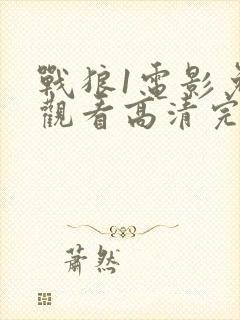 戰狼1電影免
觀看高清完
蕭然